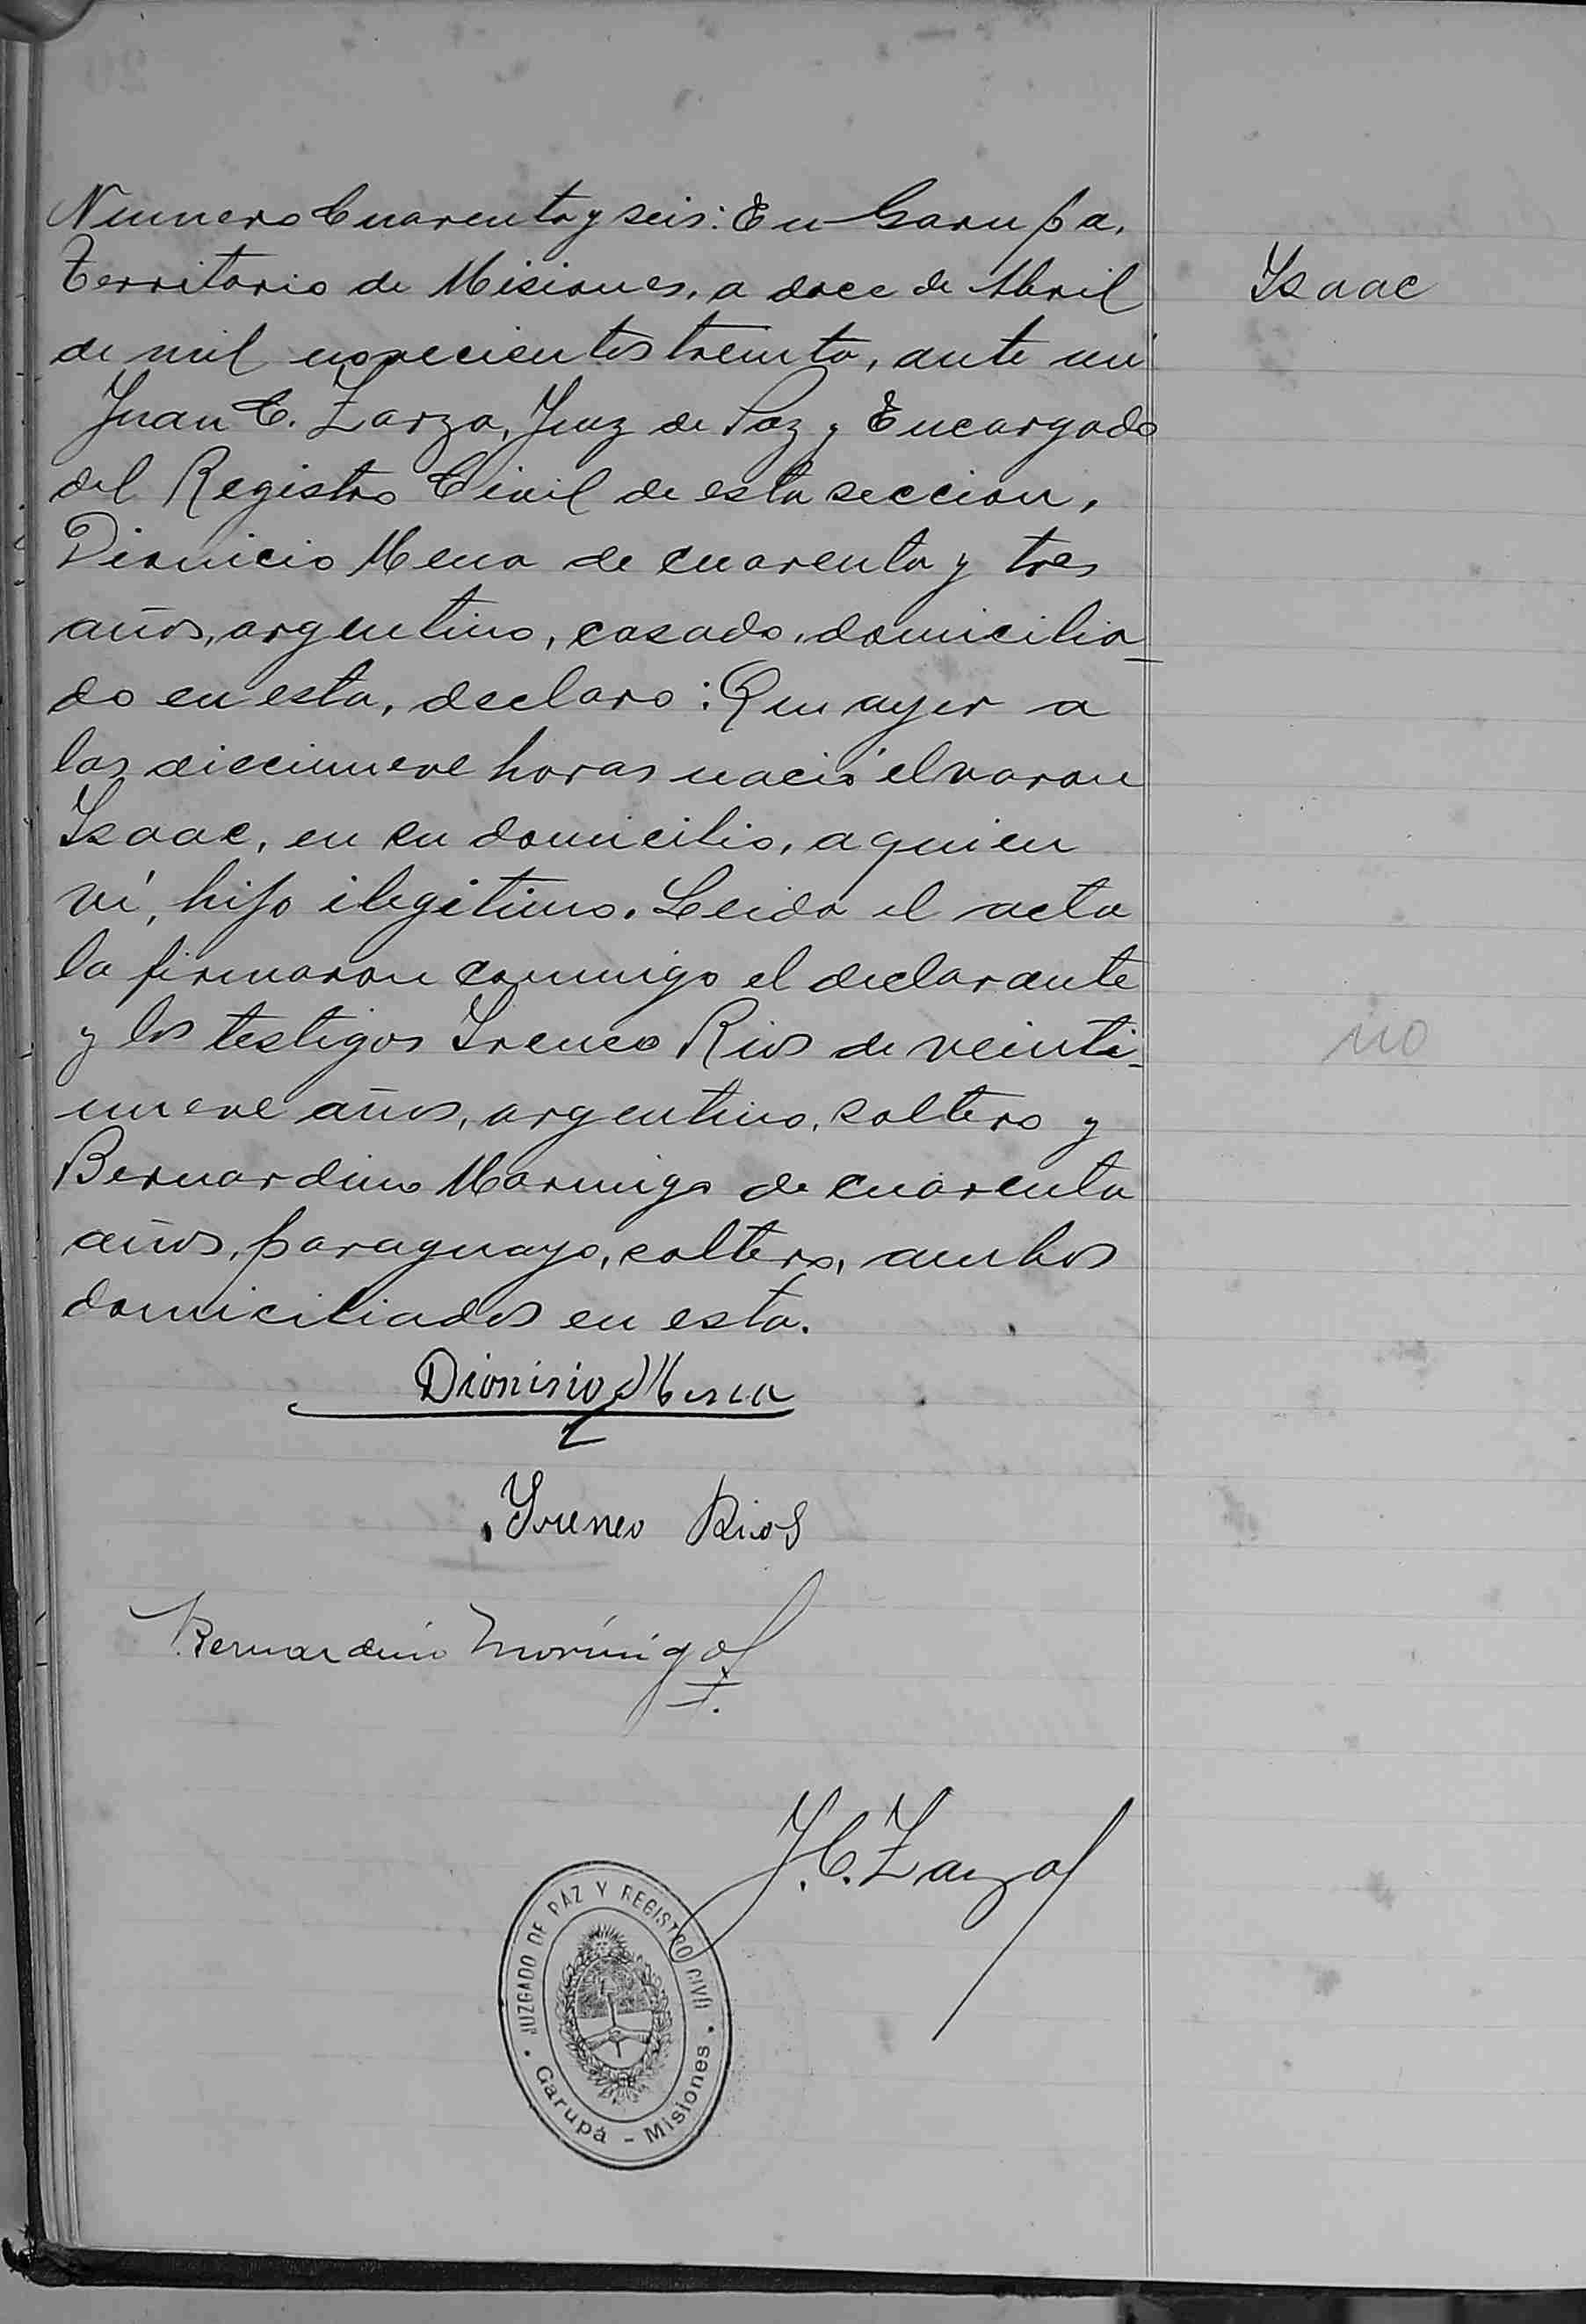 Numero Cuarenta y seis: En Garupa,
Territorio de Misiones, a doce de Abril
Isaac
de mil novecientos treinta, ante mi
Juan C. Zarza, Juez de Paz y Encargado
del Registro Civil de esta seccion,
Dionicio Mena de cuarenta y tres
años, argentino, casado, domicilia-
do en esta, declaro: Que ayer a
las diecinueve horas nació el varon
Isaac, en su domicilio, a quien
ví, hijo ilegitimo. Leida el acta
la firmaron conmigo el declarante
y los testigos Ireneo Rios de veinti-
no
nueve años, argentino, soltero y
Bernardino Morinigo de cuarenta
años, paraguayo, soltero, ambos
domiciliados en esta.
Dionisio Mena
Ireneo Rios
Bernardino Morínigo
J. C. Zarza
JUZGADO DE PAZ Y REGISTRO CIVIL
Garupá - Misiones